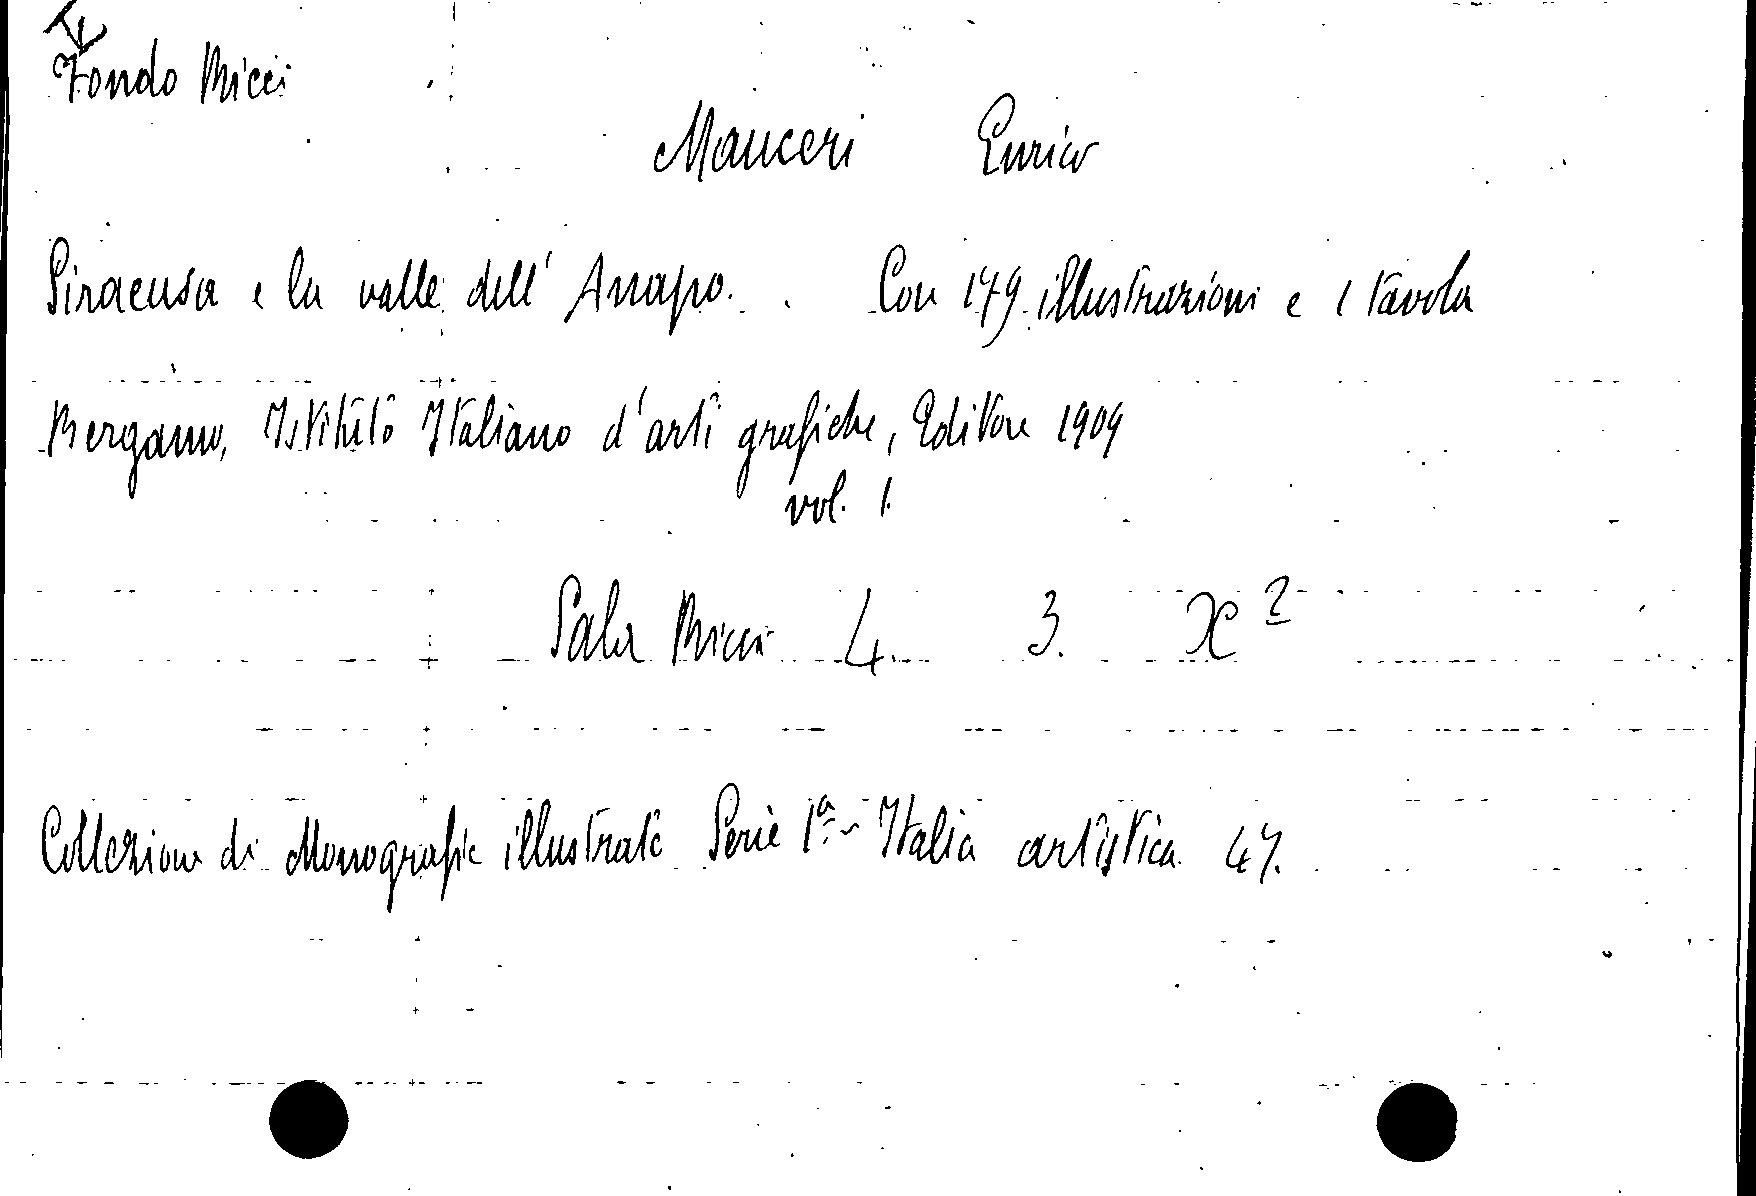 Fondo Ricci
Mauceri Enrico
Siracusa e la valle dell' Anapo. Con 179 illustrazioni e 1 tavola
Bergamo, Istituto Italiano d'arti grafiche, Editore 1909
vol. 1.
Sala Ricci 4. 3. X²
Collezione di Monografie illustrate Serie 1ª - Italia artistica 47.